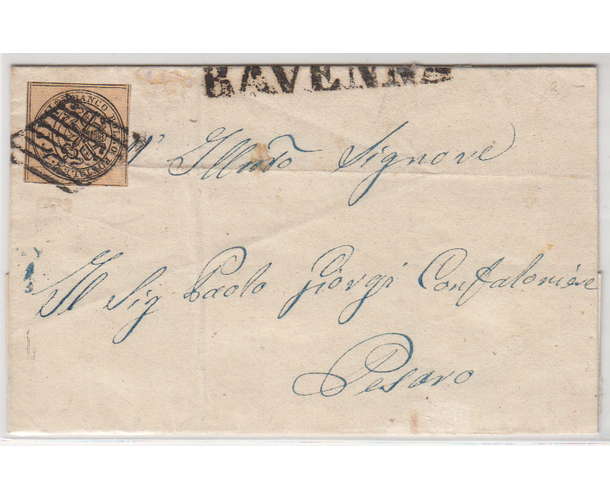 RAVENNA
FRANCO BOLLO
Illmo Signore
Il Sig Paolo Giorgi Confaloniere
Pesaro